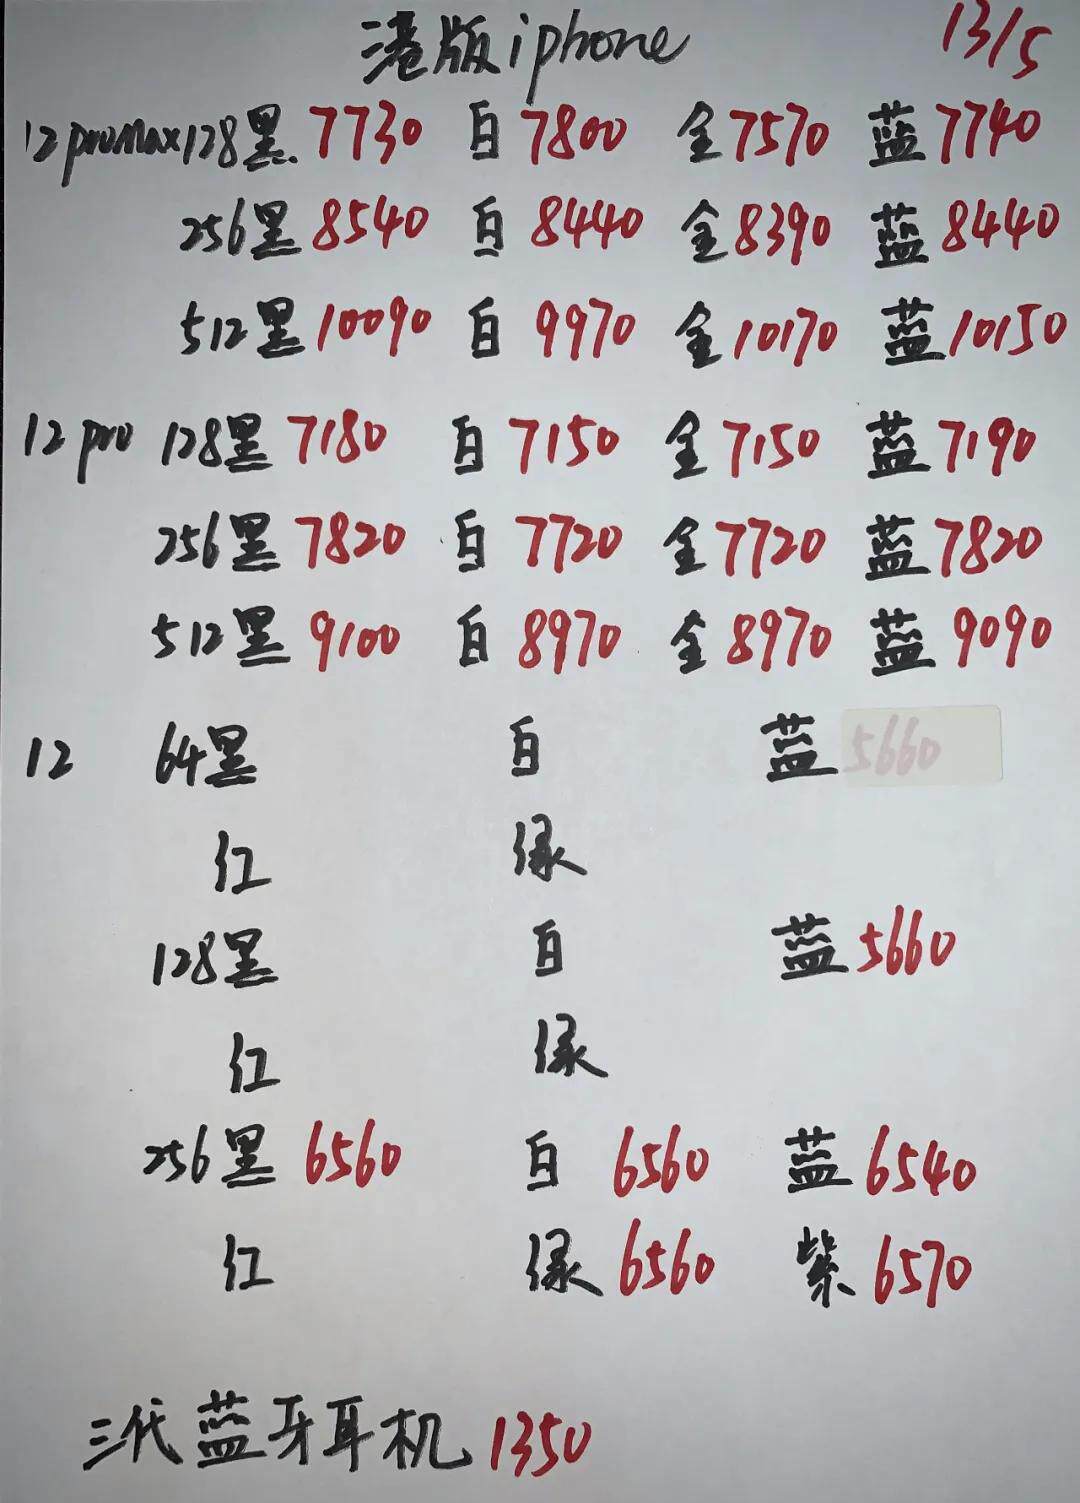 港版iphone 13/5
12promax128黑 7730 白 7800 金 7570 蓝 7740
256黑 8540 白 8440 金 8390 蓝 8440
512黑 10090 白 9970 金 10170 蓝 10150
12pro 128黑 7180 白 7150 金 7150 蓝 7190
256黑 7820 白 7720 金 7720 蓝 7820
512黑 9100 白 8970 金 8970 蓝 9090
12 64黑 白 蓝 5660
红 绿
128黑 白 蓝 5660
红 绿
256黑 6560 白 6560 蓝 6540
红 绿 6560 紫 6570
三代蓝牙耳机 1350